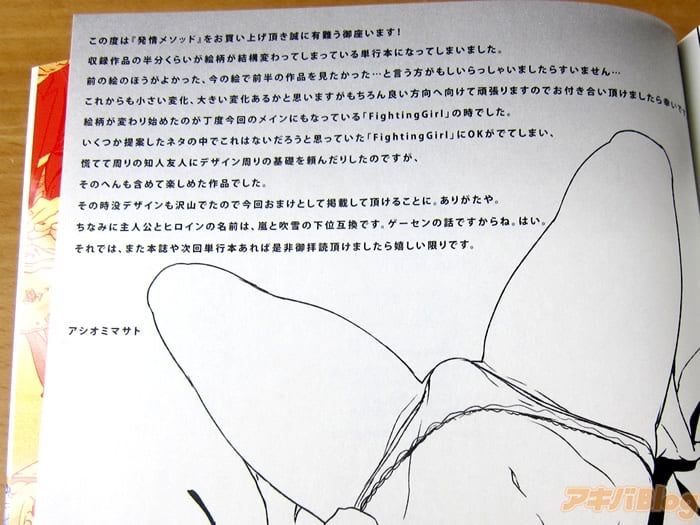 この度は『発情メソッド』をお買い上げ頂き誠に有難う御座います!
収録作品の半分くらいが絵柄が結構変わってしまっている単行本になってしまいました。
前の絵のほうがよかった、今の絵で前半の作品を見たかった…と言う方がもしいらっしゃいましたらすいません…
これからも小さい変化、大きい変化あるかと思いますがもちろん良い方向へ向けて頑張りますのでお付き合い頂けましたら幸いです
絵柄が変わり始めたのが丁度今回のメインにもなっている「FightingGirl」の時でした。
いくつか提案したネタの中でこれはないだろうと思っていた「FightingGirl」にOKがでてしまい、
慌てて周りの知人友人にデザイン周りの基礎を頼んだりしたのですが、
そのへんも含めて楽しめた作品でした。
その時没デザインも沢山でたので今回おまけとして掲載して頂けることに。ありがたや。
ちなみに主人公とヒロインの名前は、嵐と吹雪の下位互換です。ゲーセンの話ですからね。はい。
それでは、また本誌や次回単行本あれば是非御拝読頂けましたら嬉しい限りです。
アシオミマサト
アキバBlog